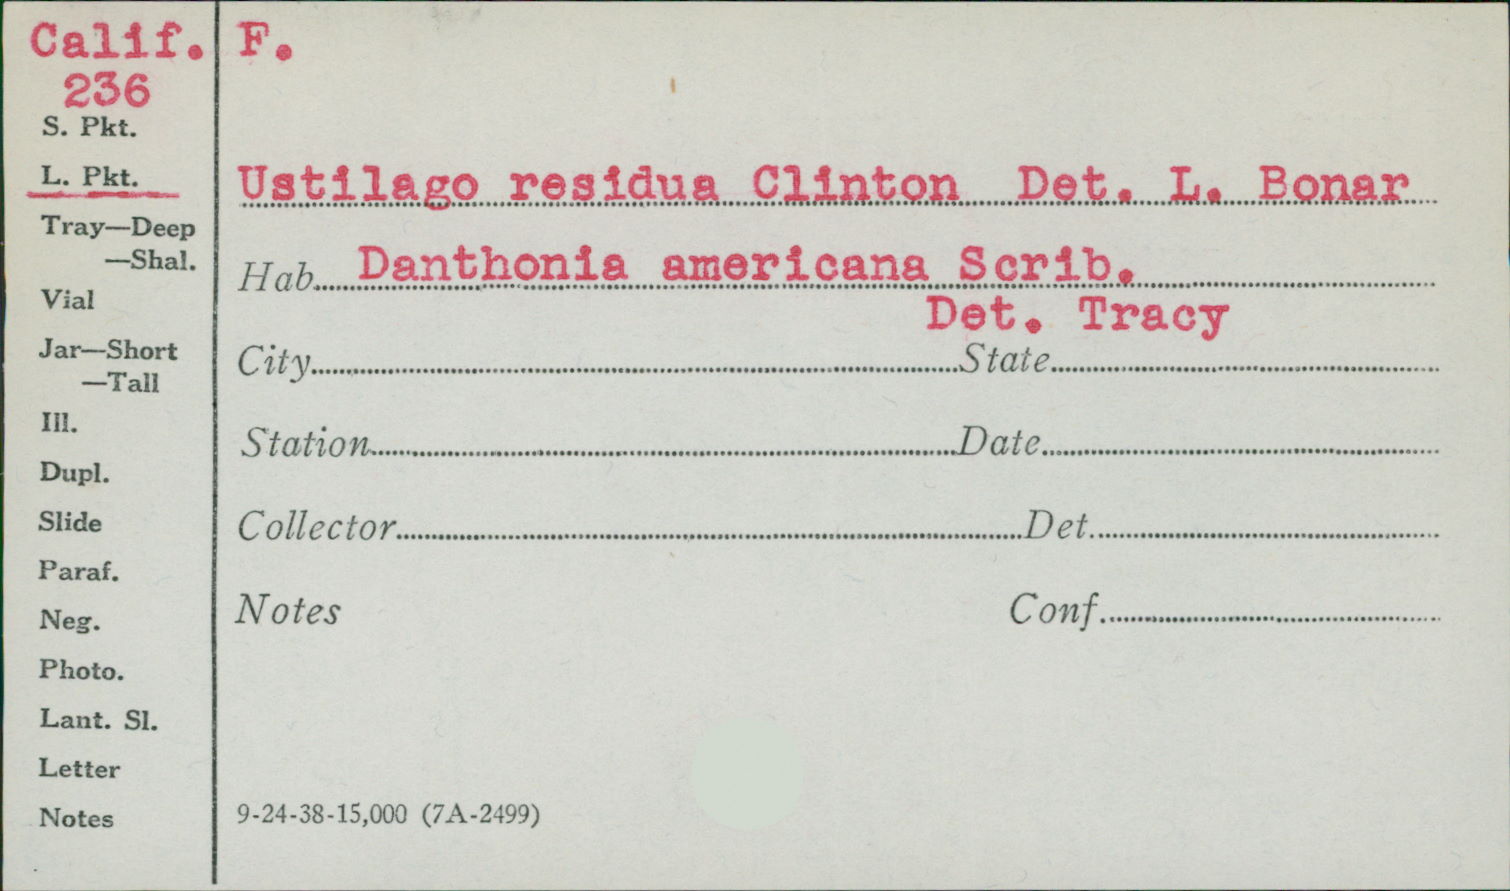 Calif. F.
236
S. Pkt.
L. Pkt.
Ustilago residua Clinton Det. L. Bonar
Tray—Deep
—Shal.
Hab. Danthonia americana Scrib.
Det. Tracy
Vial
Jar—Short
—Tall
City State
Ill.
Station Date
Dupl.
Slide
Collector Det.
Paraf.
Neg.
Notes Conf.
Photo.
Lant. Sl.
Letter
Notes
9-24-38-15,000 (7A-2499)